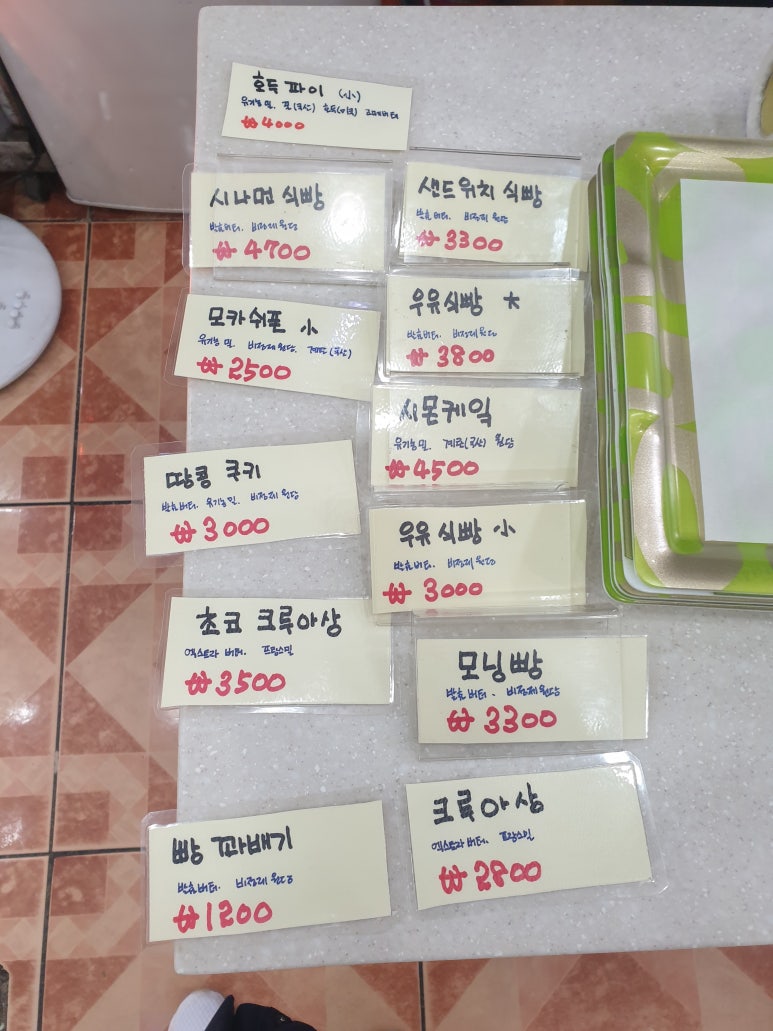 호두파이 (小)
유기농밀. 잣(국산) 호두(미국) 고메버터
₩4000
시나먼 식빵
발효버터. 비정제원당
₩4700
샌드위치 식빵
발효버터. 비정제 원당
₩3300
모카쉬폰 小
유기농 밀. 비정제원당. 계란(국산)
₩2500
우유식빵 大
발효버터. 비정제원당
₩3800
시몬케익
유기농밀. 계란(국산) 원당
₩4500
땅콩 쿠키
발효버터. 유기농밀. 비정제 원당
₩3000
우유식빵 小
발효버터. 비정제 원당
₩3000
초코 크루아상
엑스트라 버터. 프랑스밀
₩3500
모닝빵
발효버터. 비정제원당
₩3300
빵 꽈배기
발효버터. 비정제 원당
₩1200
크루아상
엑스트라 버터. 프랑스밀
₩2800